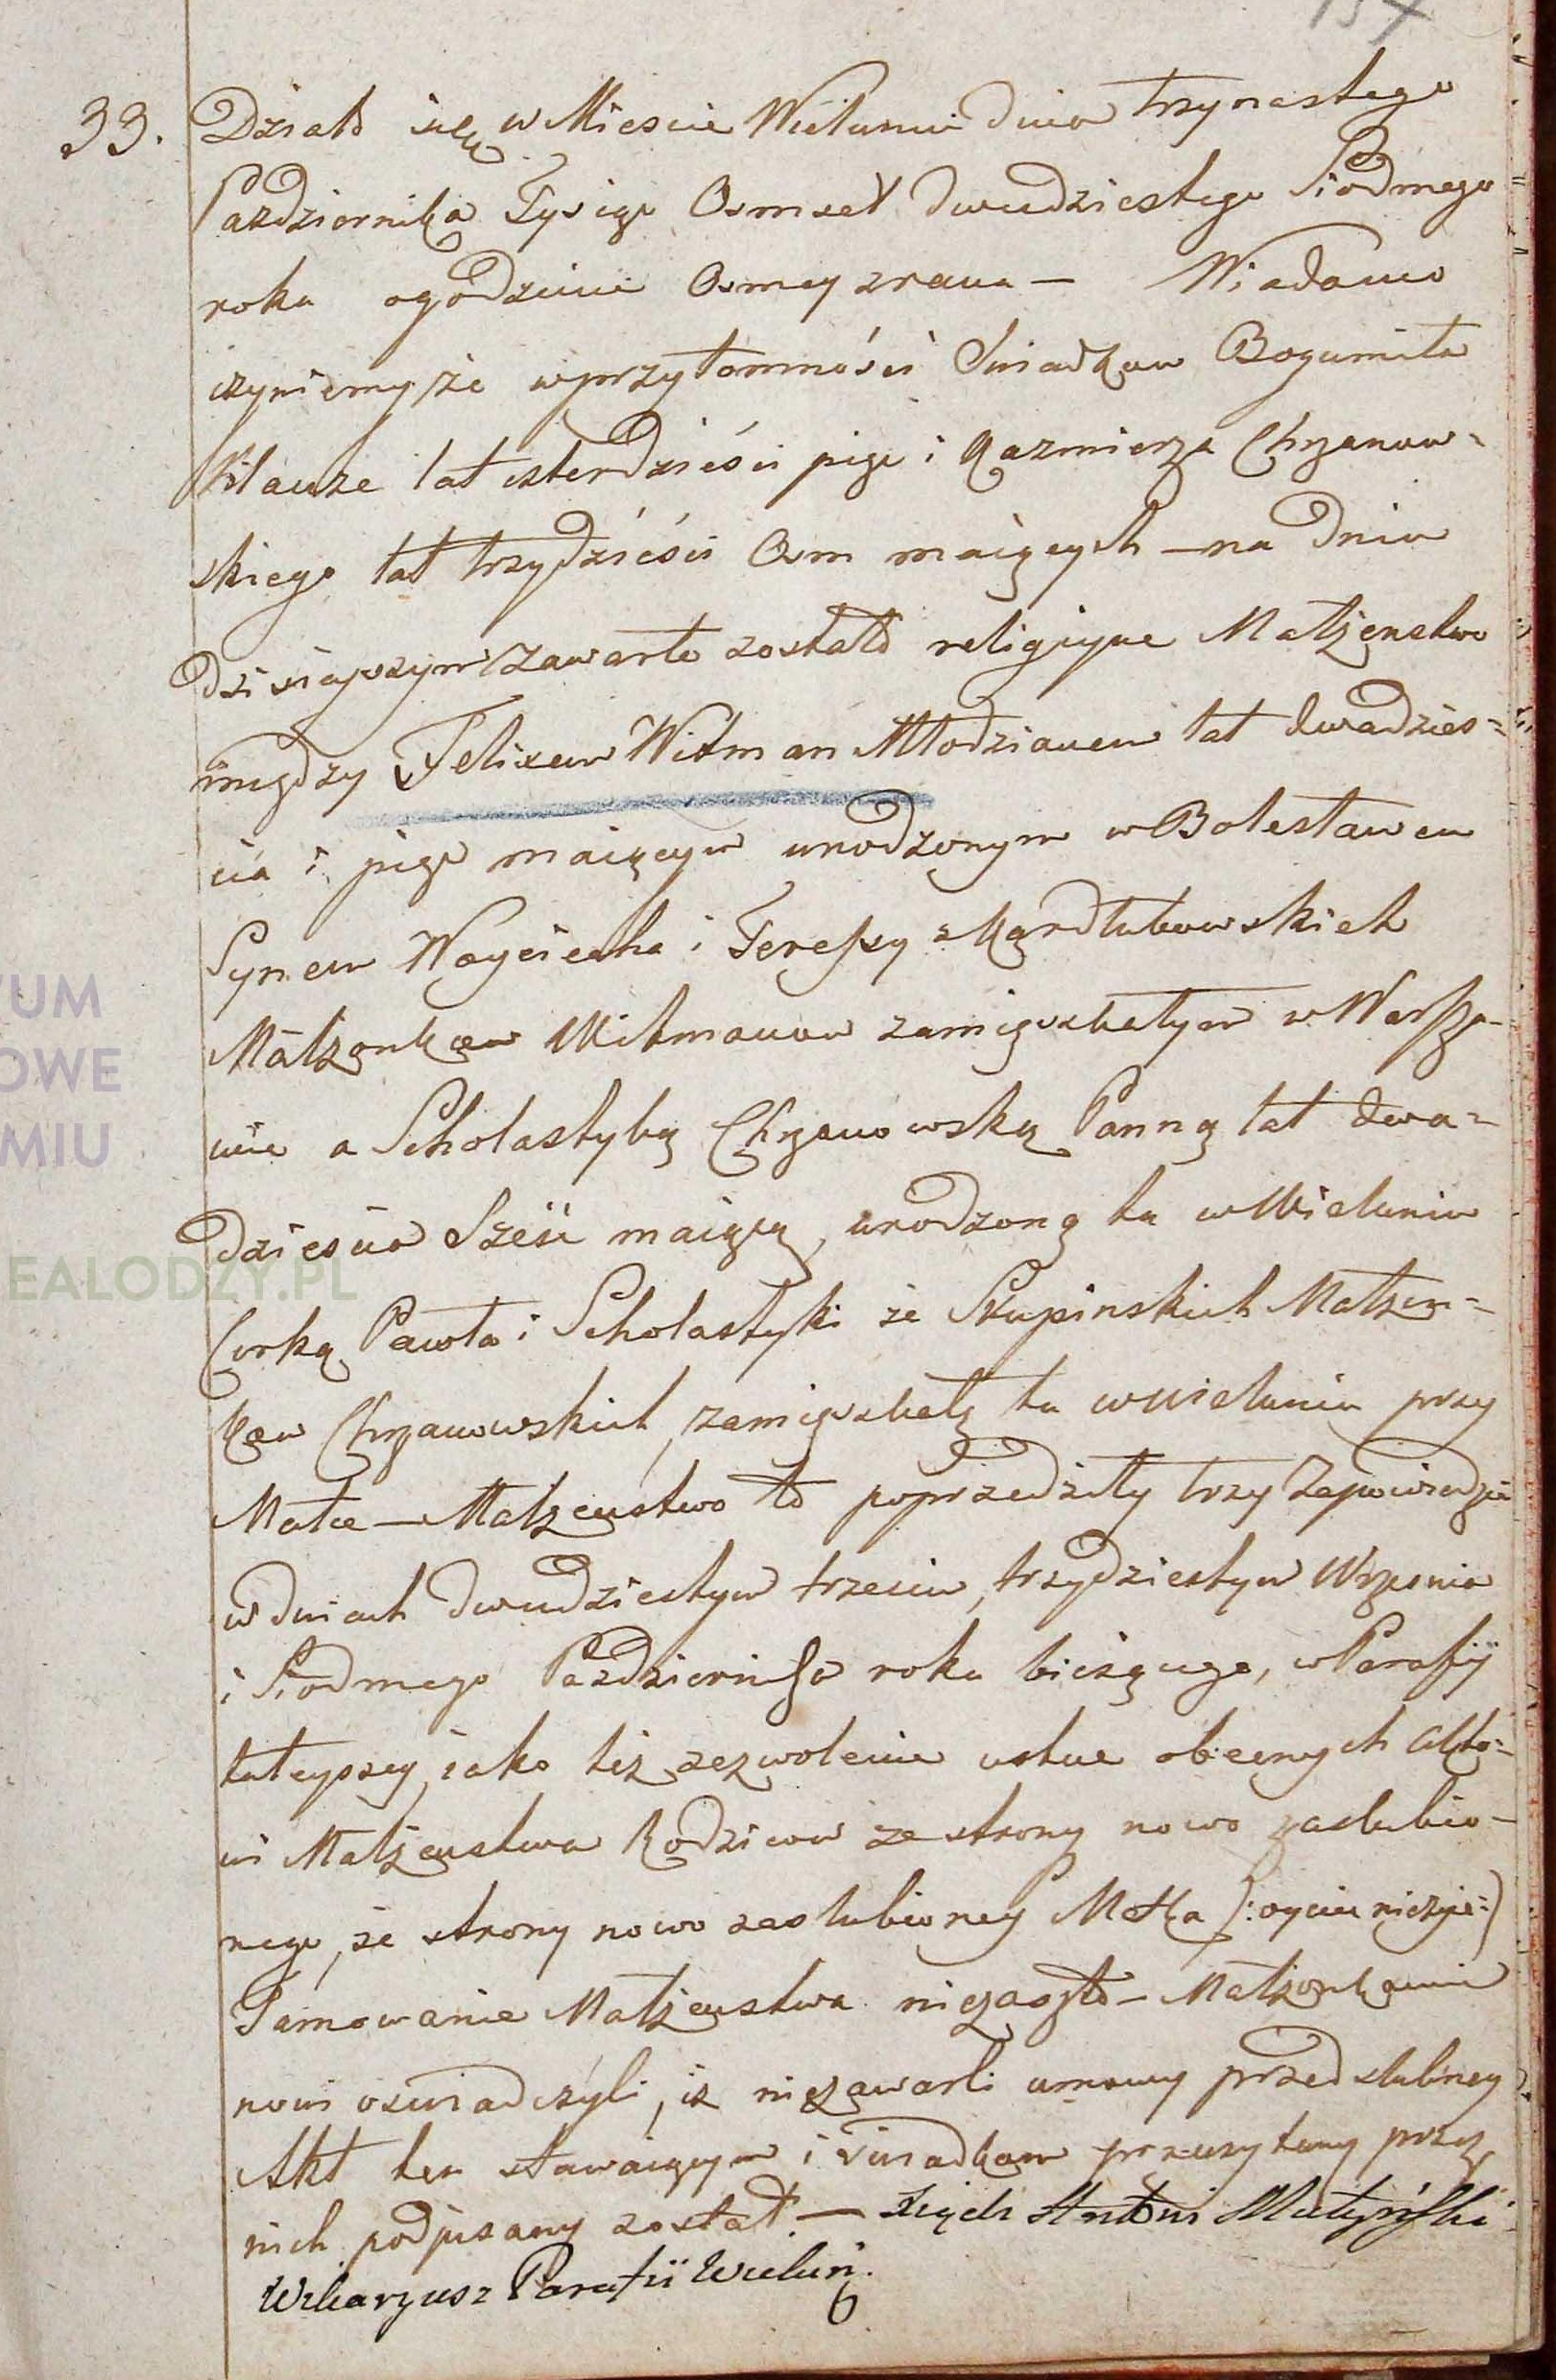 33. Działo się w Miescie Wieluniu dnia trzynastego
Pazdziernika Tysiąc Osmset dwudziestego Siodmego
roku o godzinie Osmey z rana — Wiadomo
czyniemy, że w przytomności Swiadkow Bogumiła
Klauze lat czterdzieści pięc i Kazmierza Chrzanow-
skiego lat trzydzieści Osm maiących — na dniu
dzisieyszym zawarte zostało religiyne Małżenstwo
między Felixem Witman Młodzianem lat dwadzies-
cia i pięc maiącym urodzonym w Bolesławcu
Synem Woyciecha i Teressy z
Małżonkow Witmanow zamięszkałym w Warsza-
wie a Scholastyką Chrzanowską Panną lat dwa-
dziescia Sześć maiącą, urodzoną tu w Wieluniu
Corką Pawła i Scholastyki ze Słupinskich Małżon-
kow Chrzanowskich, zamięszkałą tu w Wieluniu przy
Matce — Małżenstwo to poprzedziły trzy Zapowiedzie
w dniach dwudziestym trzecim, trzydziestym Wrzesnia
i Siodmego Pazdziernika roku bieżącego, w Parafij
tuteyszey, iako też zezwolenie ustne obecnych Akto-
wi Małżenstwa Rodzicow ze strony nowo zaslubio-
nego, ze strony nowo zaslubioney Matka (: oyciec nieżyie :)
Tamowanie Małżenstwa niezaszło — Małżonkowie
nowi oswiadczyli, iz niezawarli umowy przedslubney
Akt ten stawaiącym i swiadkom przeczytany przez
nich podpisany został. — Xiądz Antoni
Wikaryusz Parafii Wieluń.
VUM
OWE
MIU
EALODZY.PL